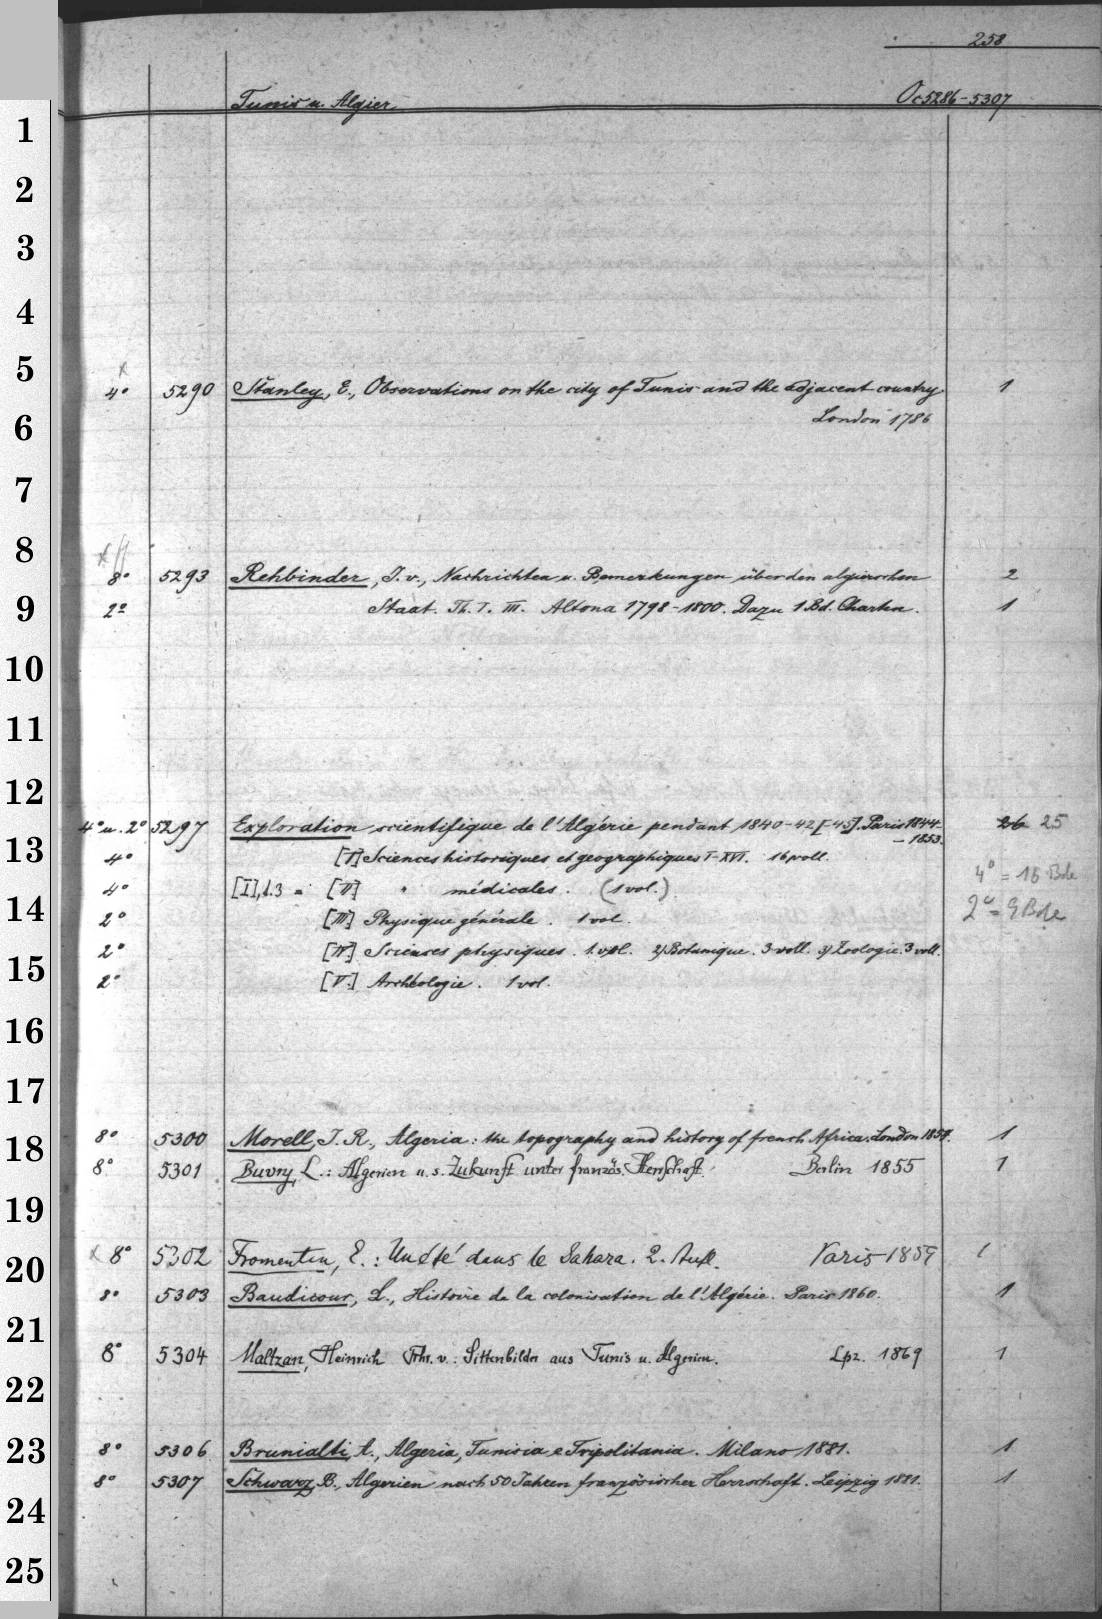 258
Tunis u. Algier Oc 5286-5307
1
2
3
4
5
4° 5290 Stanley, E., Observations on the city of Tunis and the adjacent country 1
London 1786
6
7
8
8° 5293 Rehbinder, J. v., Nachrichten u. Bemerkungen über den algierschen 2
9 2° Staat. Th. I. III. Altona 1798-1800. Dazu 1 Bd. Charten. 1
10
11
12
4° u. 2° 5297 Exploration scientifique de l'Algérie pendant 1840-42 [-45]. Paris 1844 26 25
-1853.
13 4° [I] Sciences historiques et geographiques I-XVI. 16 voll. 4° = 16 Bde
4° [I], 1.3 = [II] " médicales. (1 vol.)
14 2° [III] Physique générale. 1 vol. 2° = 9 Bde
2° [IV] Sciences physiques. 1. vol. 2) Botanique. 3 voll. 3) Zoologie. 3 voll.
15 2° [V.] Archéologie. 1 vol.
16
17
18 8° 5300 Morell, J. R., Algeria: the topography and history of french Africa. London 1854. 1
8° 5301 Buvry, L.: Algerien u. s. Zukunft unter französ. Herrschaft. Berlin 1855 1
19
20 x 8° 5302 Fromentin, E.: Un été dans le Sahara. 2. Aufl. Paris 1859 1
8° 5303 Baudicour, L., Histoire de la colonisation de l'Algérie. Paris 1860. 1
21
8° 5304 Maltzan, Heinrich Frhr. v.: Sittenbilder aus Tunis u. Algerien. Lpz. 1869 1
22
23 8° 5306 Brunialti, A., Algeria, Tunisia e Tripolitania. Milano 1881. 1
8° 5307 Schwarz, B., Algerien nach 50 Jahren französischer Herrschaft. Leipzig 1881. 1
24
25